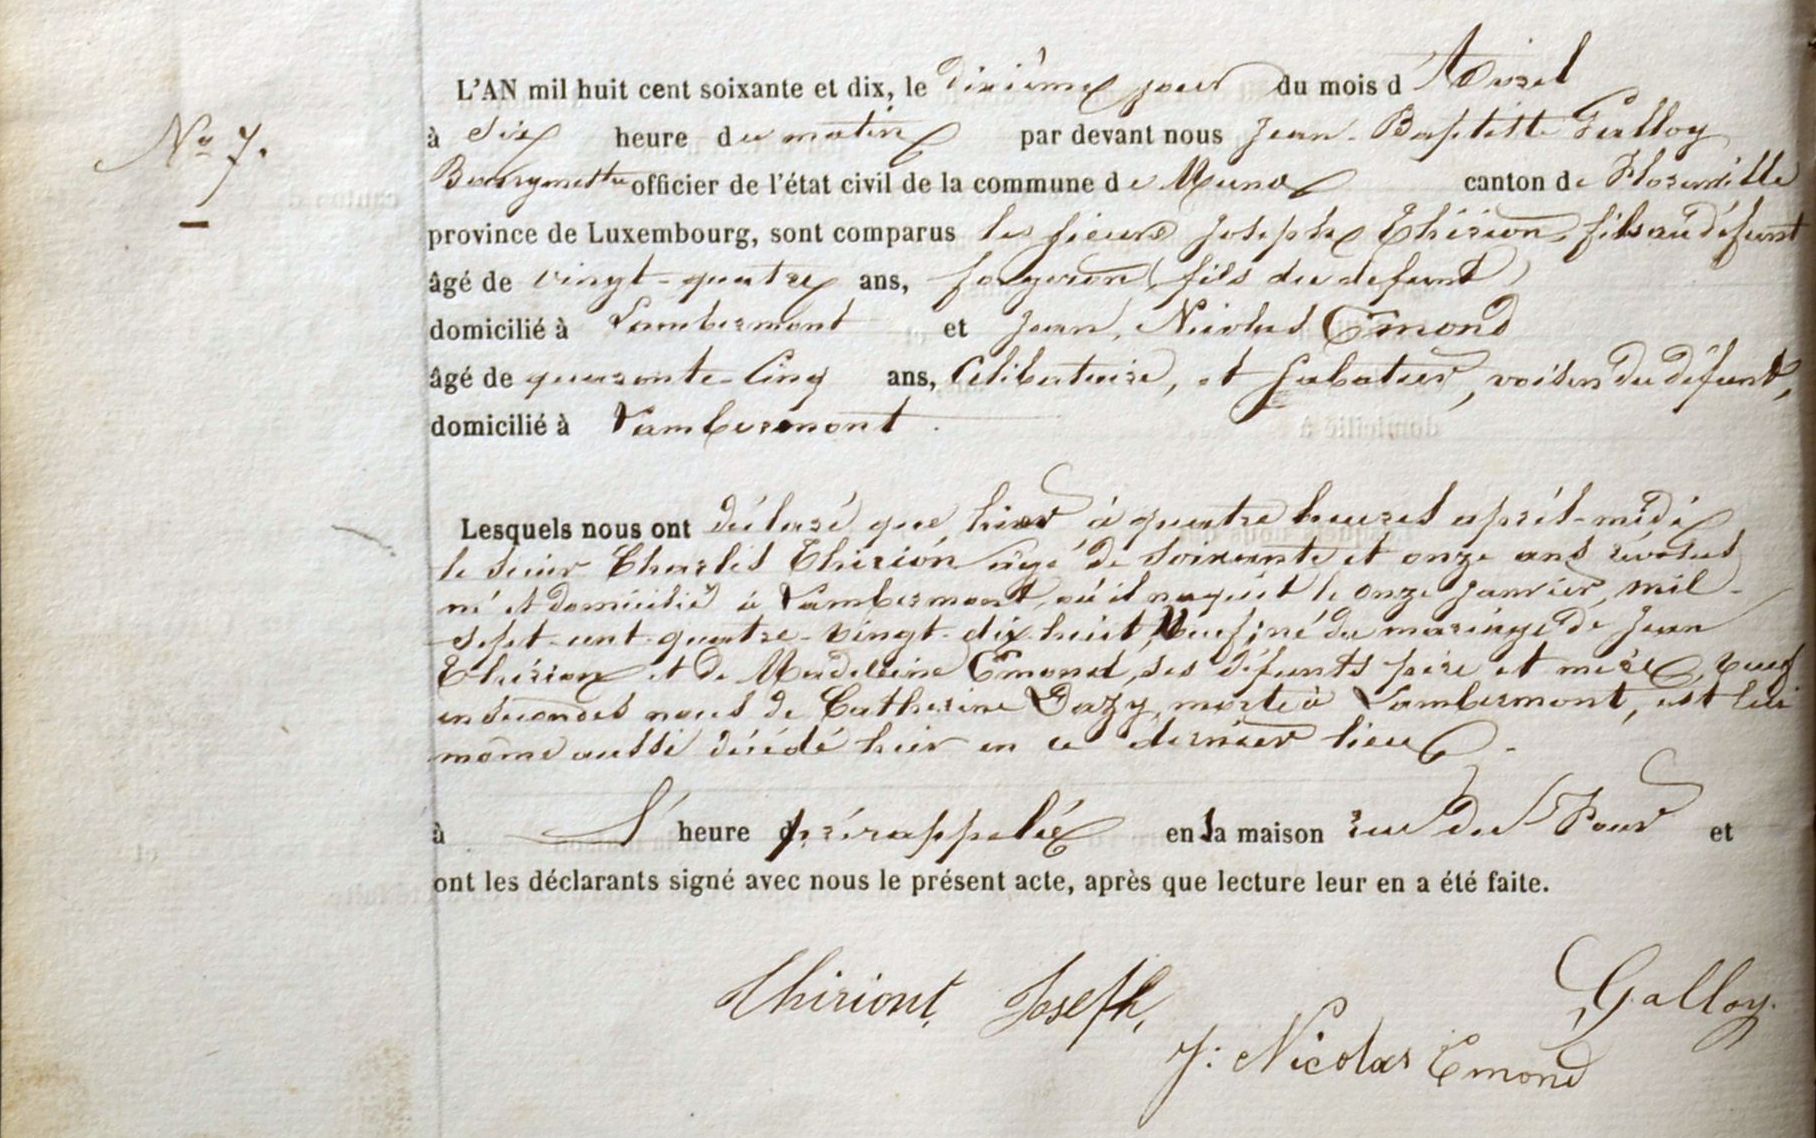 No 7.
L'AN mil huit cent soixante et dix, le dixième jour du mois d'Avril
à six heure du matin par devant nous Jean-Baptiste Galloy
Bourgmestre officier de l'état civil de la commune de Muno canton de Florenville
province de Luxembourg, sont comparus les sieurs Joseph Thirion, fils au défunt
âgé de vingt-quatre ans, forgeron (fils du defunt)
domicilié à Lambermont et Jean, Nicolas Emond
âgé de quarante-cinq ans, Célibataire, et sabotier, voisin du défunt,
domicilié à Lambermont.
Lesquels nous ont déclaré que hier à quatre heures après-midi
le sieur Charles Thirion âgé de soixante et onze ans révolus
né et domicilié à Lambermont, où il naquit le onze janvier, mil-
sept-cent-quatre-vingt-dix huit, veuf; né du mariage de Jean
Thirion et de Madeleine Emond, ses défunts père et mère, veuf
en secondes noces de Catherine Dazy, morte à Lambermont, est lui
même aussi décédé hier en ce dernier lieu.
à l'heure prérappelée en la maison rue du Four et
ont les déclarants signé avec nous le présent acte, après que lecture leur en a été faite.
Thiriont, Joseph, Galloy.
J: Nicolas Emond